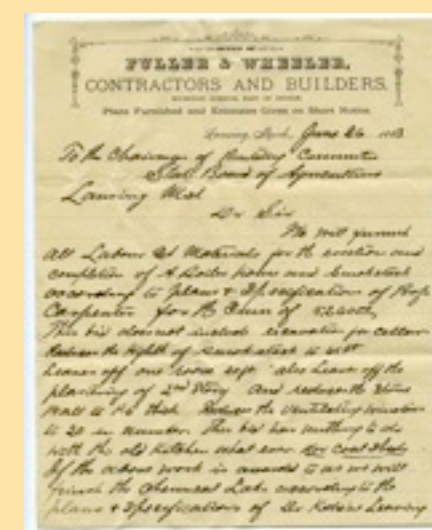 OFFICE OF
FULLER & WHEELER,
CONTRACTORS AND BUILDERS,
Plans Furnished and Estimates Given on Short Notice.
Lansing, Mich. June 26 188
To the Chairman of Building Committee
State Board of Agriculture
Lansing Mich
Dr Sir
We will furnish
all Labour & Materials for the erection and
completion of A Boiler house and Smokestack
according to plans & Specification of Prof
Carpenter for the Sum of
This bid does not include excavation for cellar
Reduce the height of Smokestack to
Leave off one also leave off the
plastering of 2nd Story And reduce the
wall to thick Reduce the Ventilating
to 20 in number. This bid has nothing to do
with the old Kitchen what ever. nor Coal Sheds
If the above work is awarded to us we will
finish the Chemical Lab. according to the
plans & Specifications of Dr Kedzie Leaving